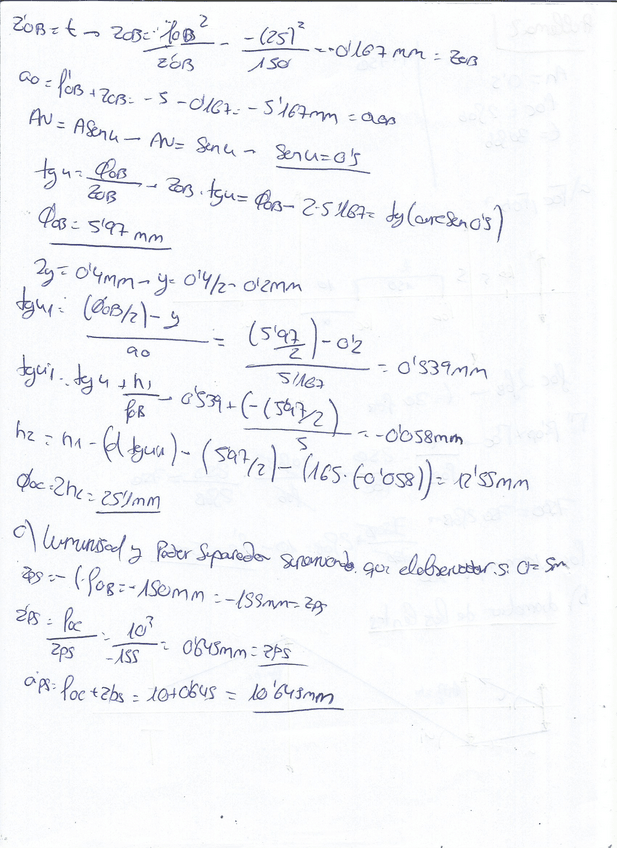 z'OB = t → zOB = -f'OB² / z'OB - -(25)² / 150 = -0'167 mm = zOB
ao = f'OB + zOB = -5 - 0'167 = -5'167mm = aOB
AN = ASenu — AN = Senu - Senu = 0'5
tgu = ΦOB / zOB → zOB · tgu = ΦOB - 2·5'167 = tg(arcsen 0'5)
ΦOB = 5'97 mm
2y = 0'4mm — y = 0'4/2 - 0'2mm
tgu1 = (ΦOB/2) - y / ao = (5'97/2) - 0'2 / 5'167 = 0'539mm
tgu'1 = tgu + h1 / f'OB - 0'539 + (-(5'97/2) / 5 = -0'058mm
h2 = h1 - (d tgu) - (5'97/2) - (165·(-0'058)) = 12'55mm
ΦOC = 2h2 = 25'1mm
c) Luminosidad y Poder Separador que el observador si O = 5m
zps = - (-f'OB = -150mm = -155mm = zps
z'ps = f'oc / zps = 10³ / -155 = 0'645mm = zps
a'ps = f'oc + z'ps = 10 + 0'645 = 10'645mm